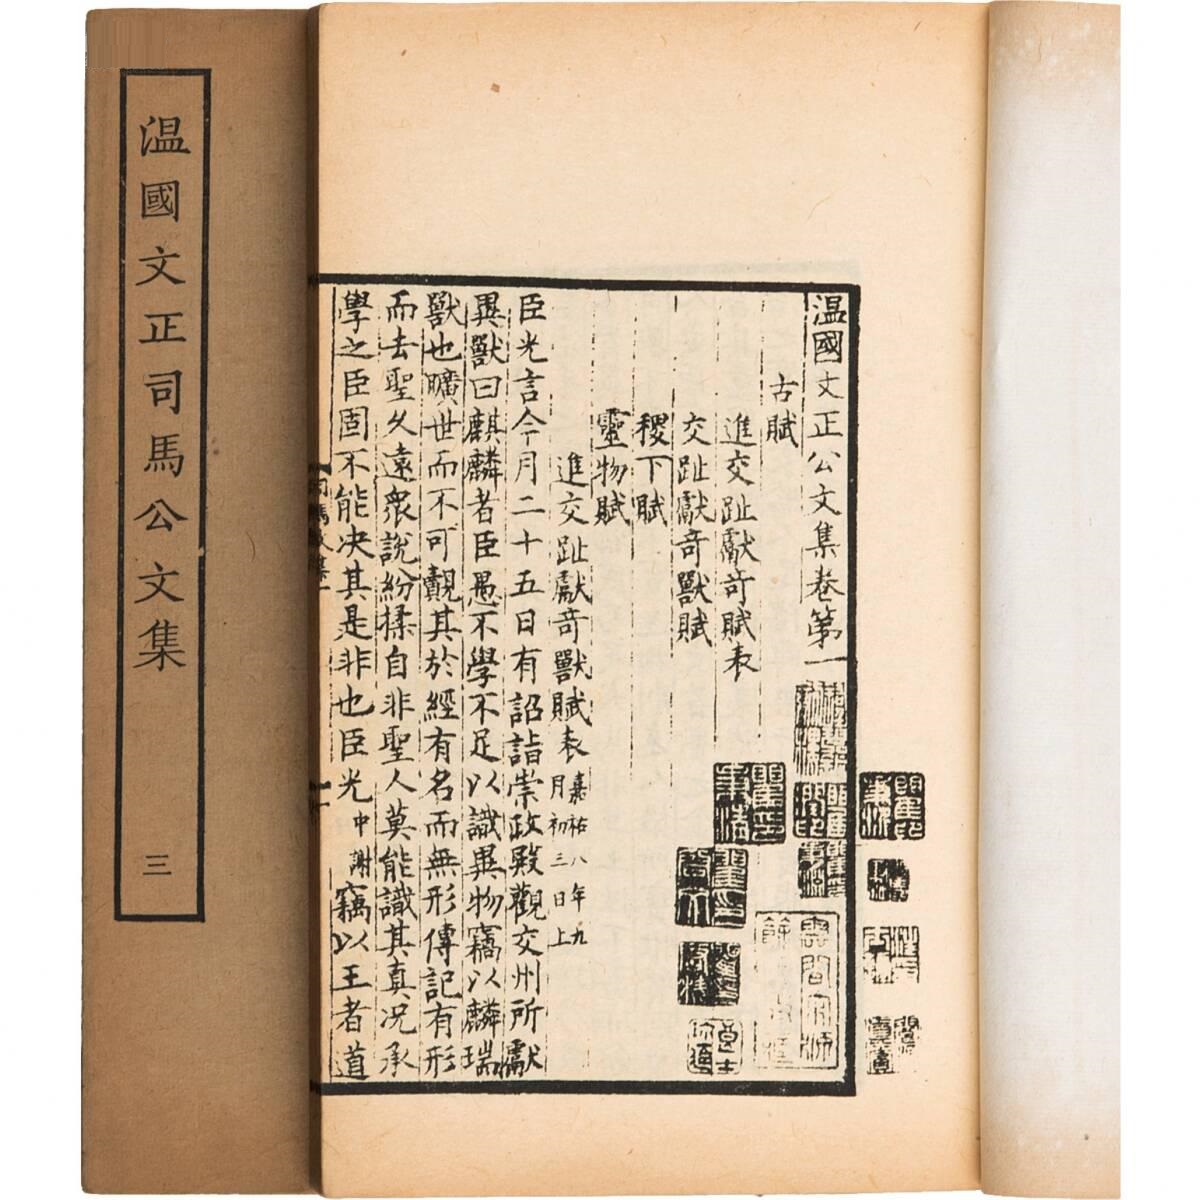 温國文正司馬公文集
三
温國文正公文集卷第一
古賦
進交趾獻奇賦表
交趾獻奇獸賦
稷下賦
靈物賦
進交趾獻奇獸賦表嘉祐八年九
月初三日上
臣光言今月二十五日有詔詣崇政殿觀交州所獻
異獸曰麒麟者臣愚不學不足以識異物竊以麟瑞
獸也曠世而不可覿其於經有名而無形傳記有形
而去聖久遠衆說紛揉自非聖人莫能識其真况承
學之臣固不能决其是非也臣光中謝竊以王者道